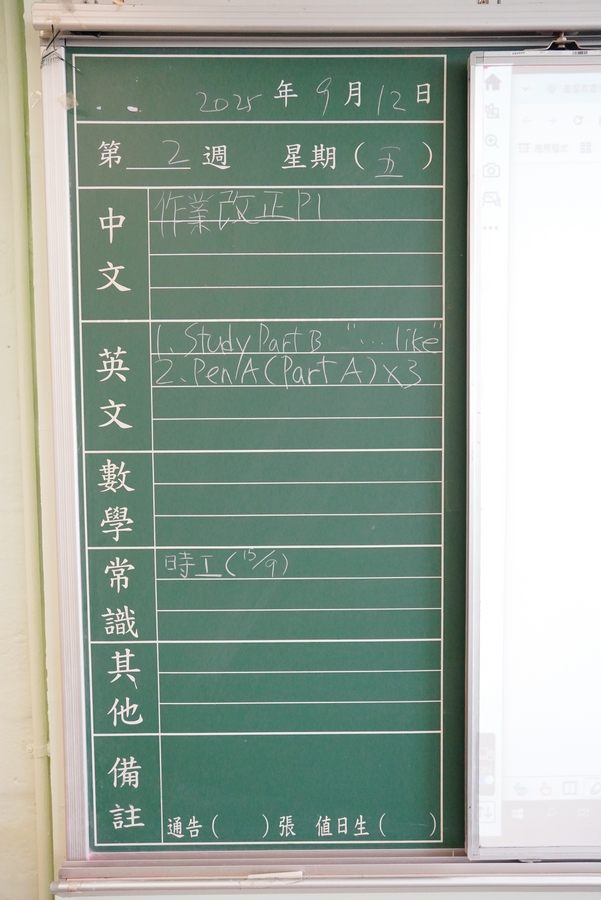 2025 年 9 月 12 日
第 2 週 星期 ( 五 )
中文
作業改正P1
英文
1. Study Part B "... like"
2. Pen/A (Part A) x3
數學
常識
時工 (15/9)
其他
備註
通告 ( ) 張 值日生 ( )